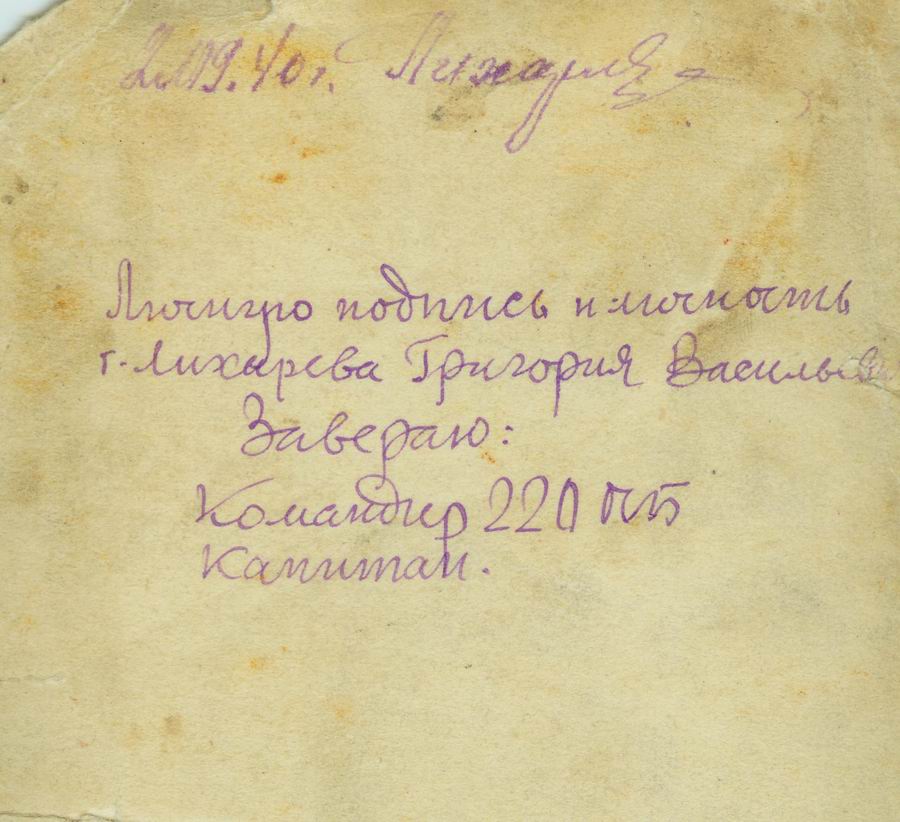 2/II 9.40 г. Лихарев
Личную подпись и личность
г. Лихарева Григория Василье
Заверяю:
Командир 220 ПТБ
Капитан.